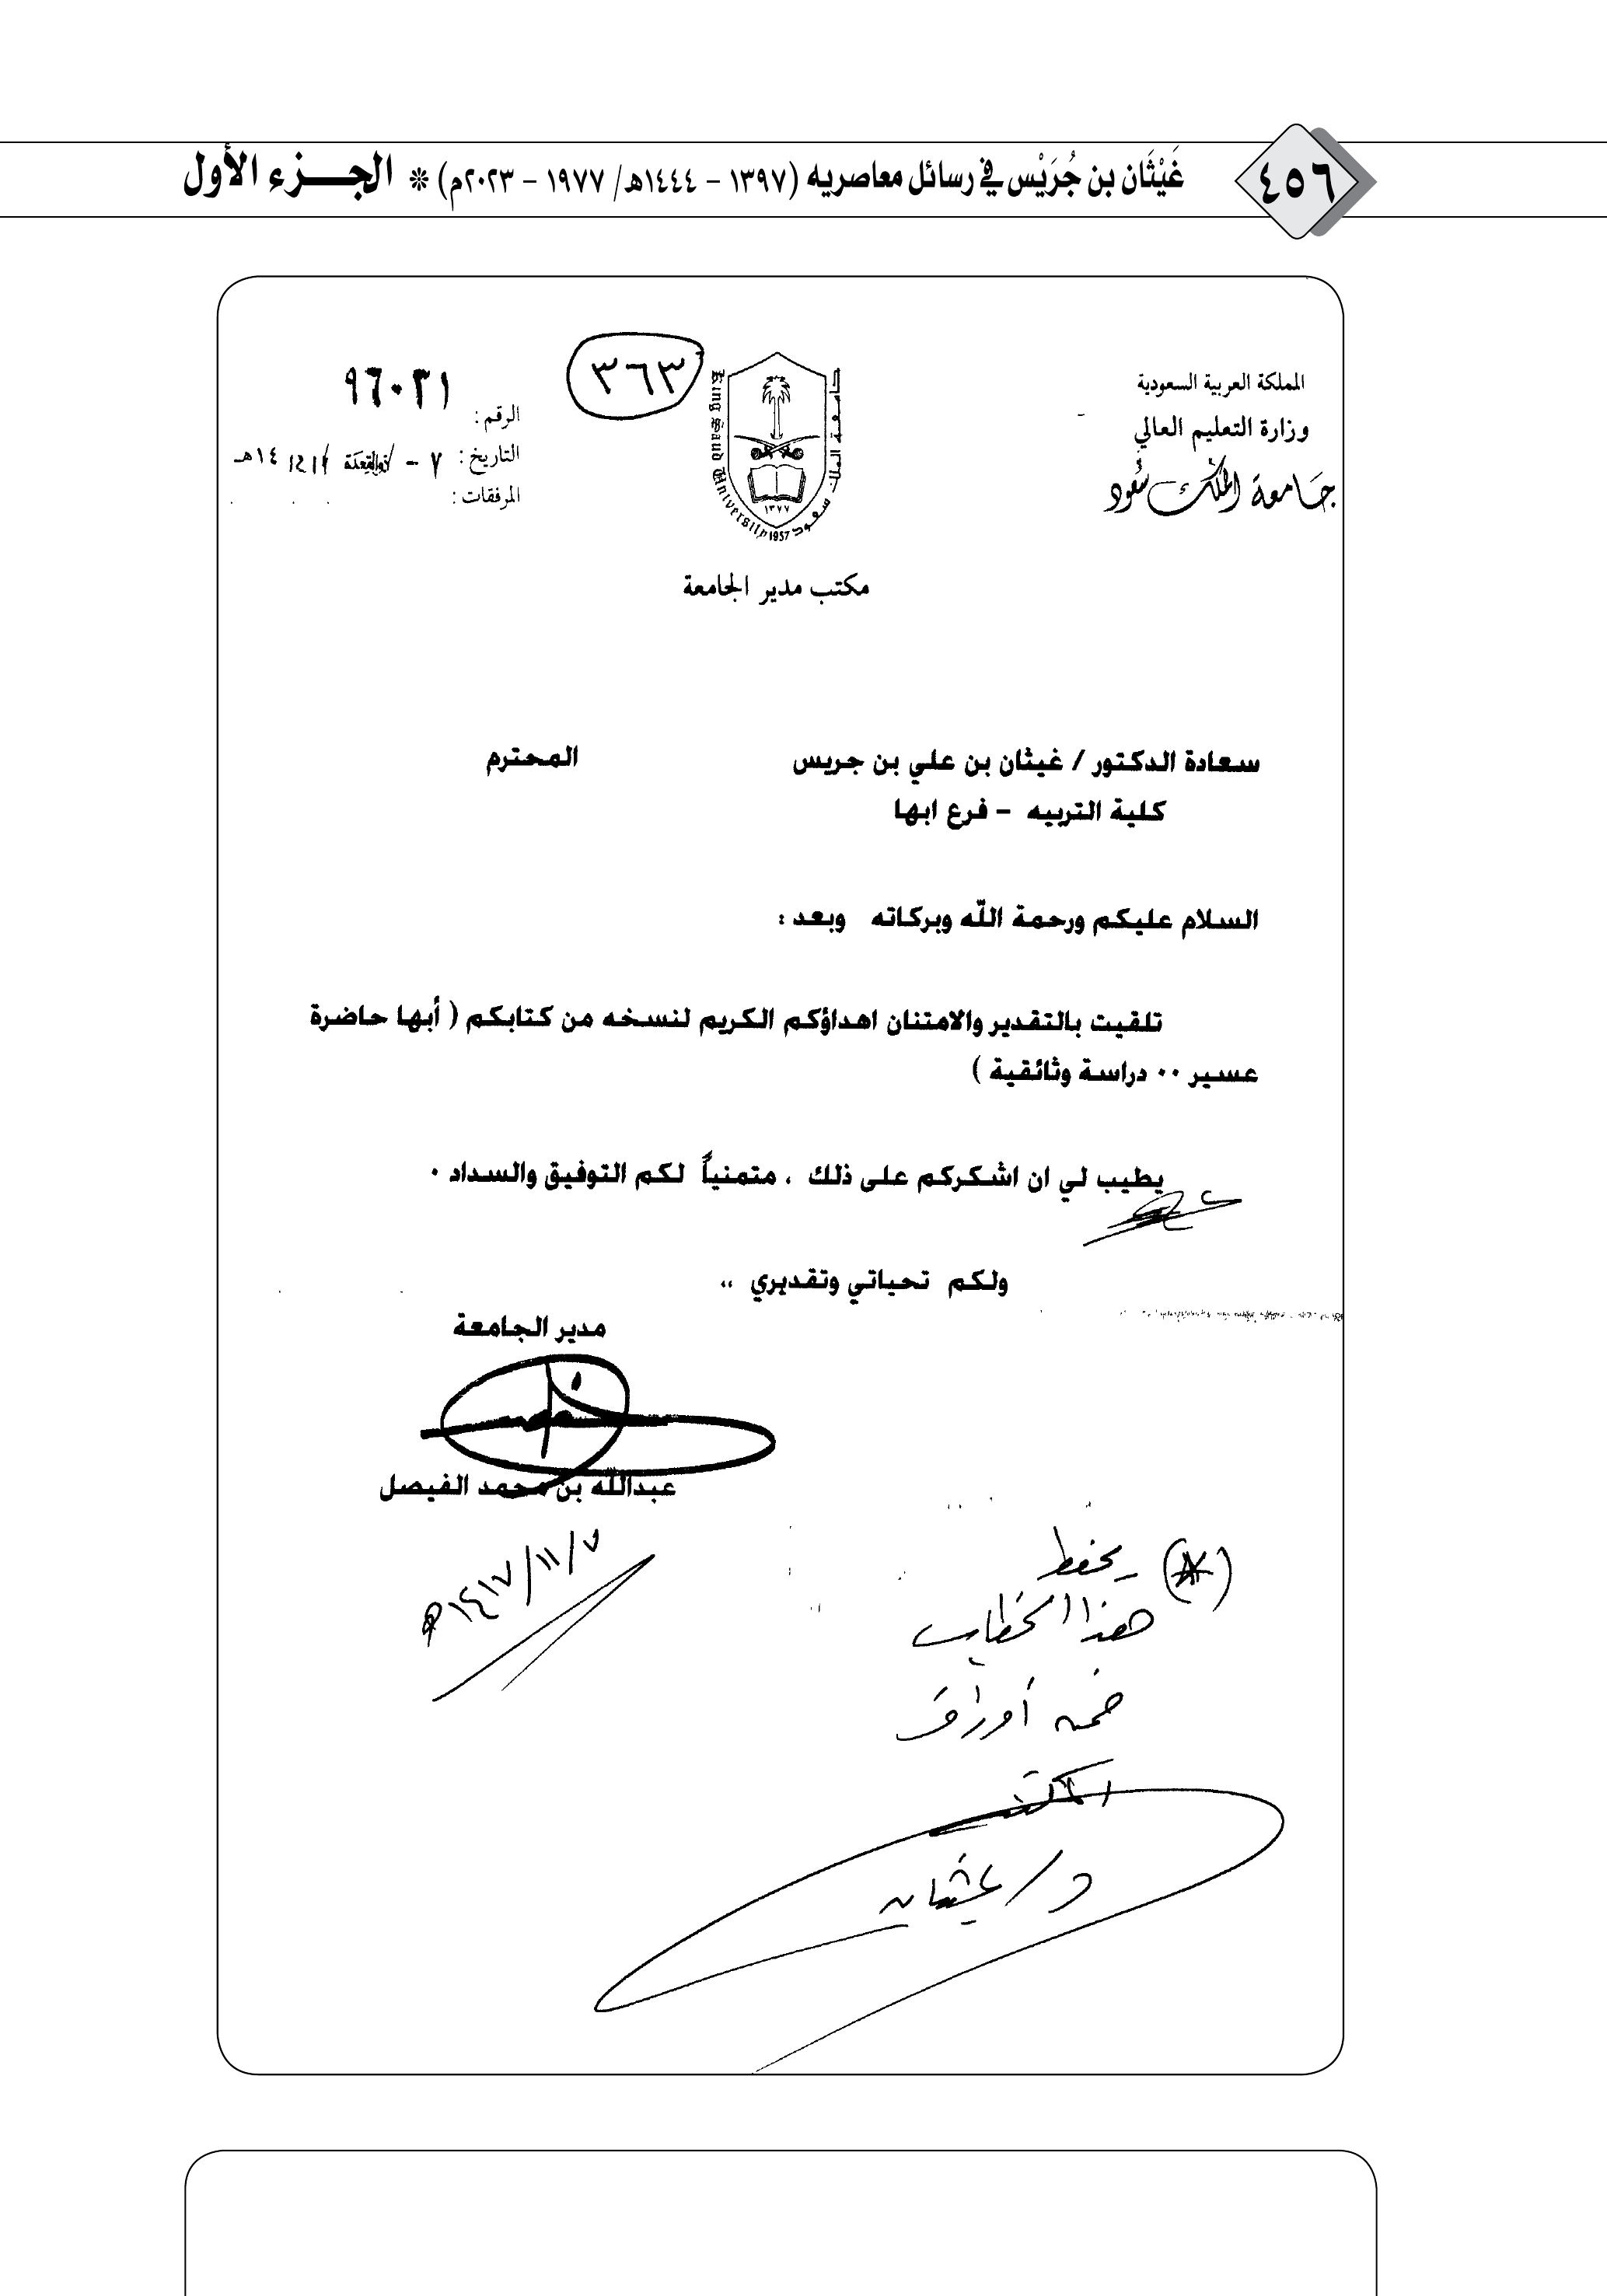 ٤٥٦
غَيْثَان بن جُرَيْس في رسائل معاصريه (١٣٩٧ - ١٤٤٤هـ/ ١٩٧٧ - ٢٠٢٣م) * الجــزء الأول
المملكة العربية السعودية
وزارة التعليم العالي
جامعة الملك سعود
جامعة الملك سعود
King Saud University
١٣٧٧
1957
٣٦٣
الرقم : ٩٦٠٣١
التاريخ : ٧ - ذوالقعدة ١٤هـ
المرفقات :
مكتب مدير الجامعة
سعادة الدكتور / غيثان بن علي بن جريس المحترم
كلية التربيه - فرع ابها
السلام عليكم ورحمة الله وبركاته وبعد :
تلقيت بالتقدير والامتنان اهداؤكم الكريم لنسخه من كتابكم ( أبها حاضرة
عسير ٠٠ دراسة وثائقية )
يطيب لي ان اشكركم على ذلك ، متمنياً لكم التوفيق والسداد ٠
ولكم تحياتي وتقديري ،،
مدير الجامعة
عبدالله بن محمد الفيصل
(*) يحفظ
هذا الخطاب
ضمن أوراق
المكتبة
د/ غيثان
٧/١١/١٤١٧هـ